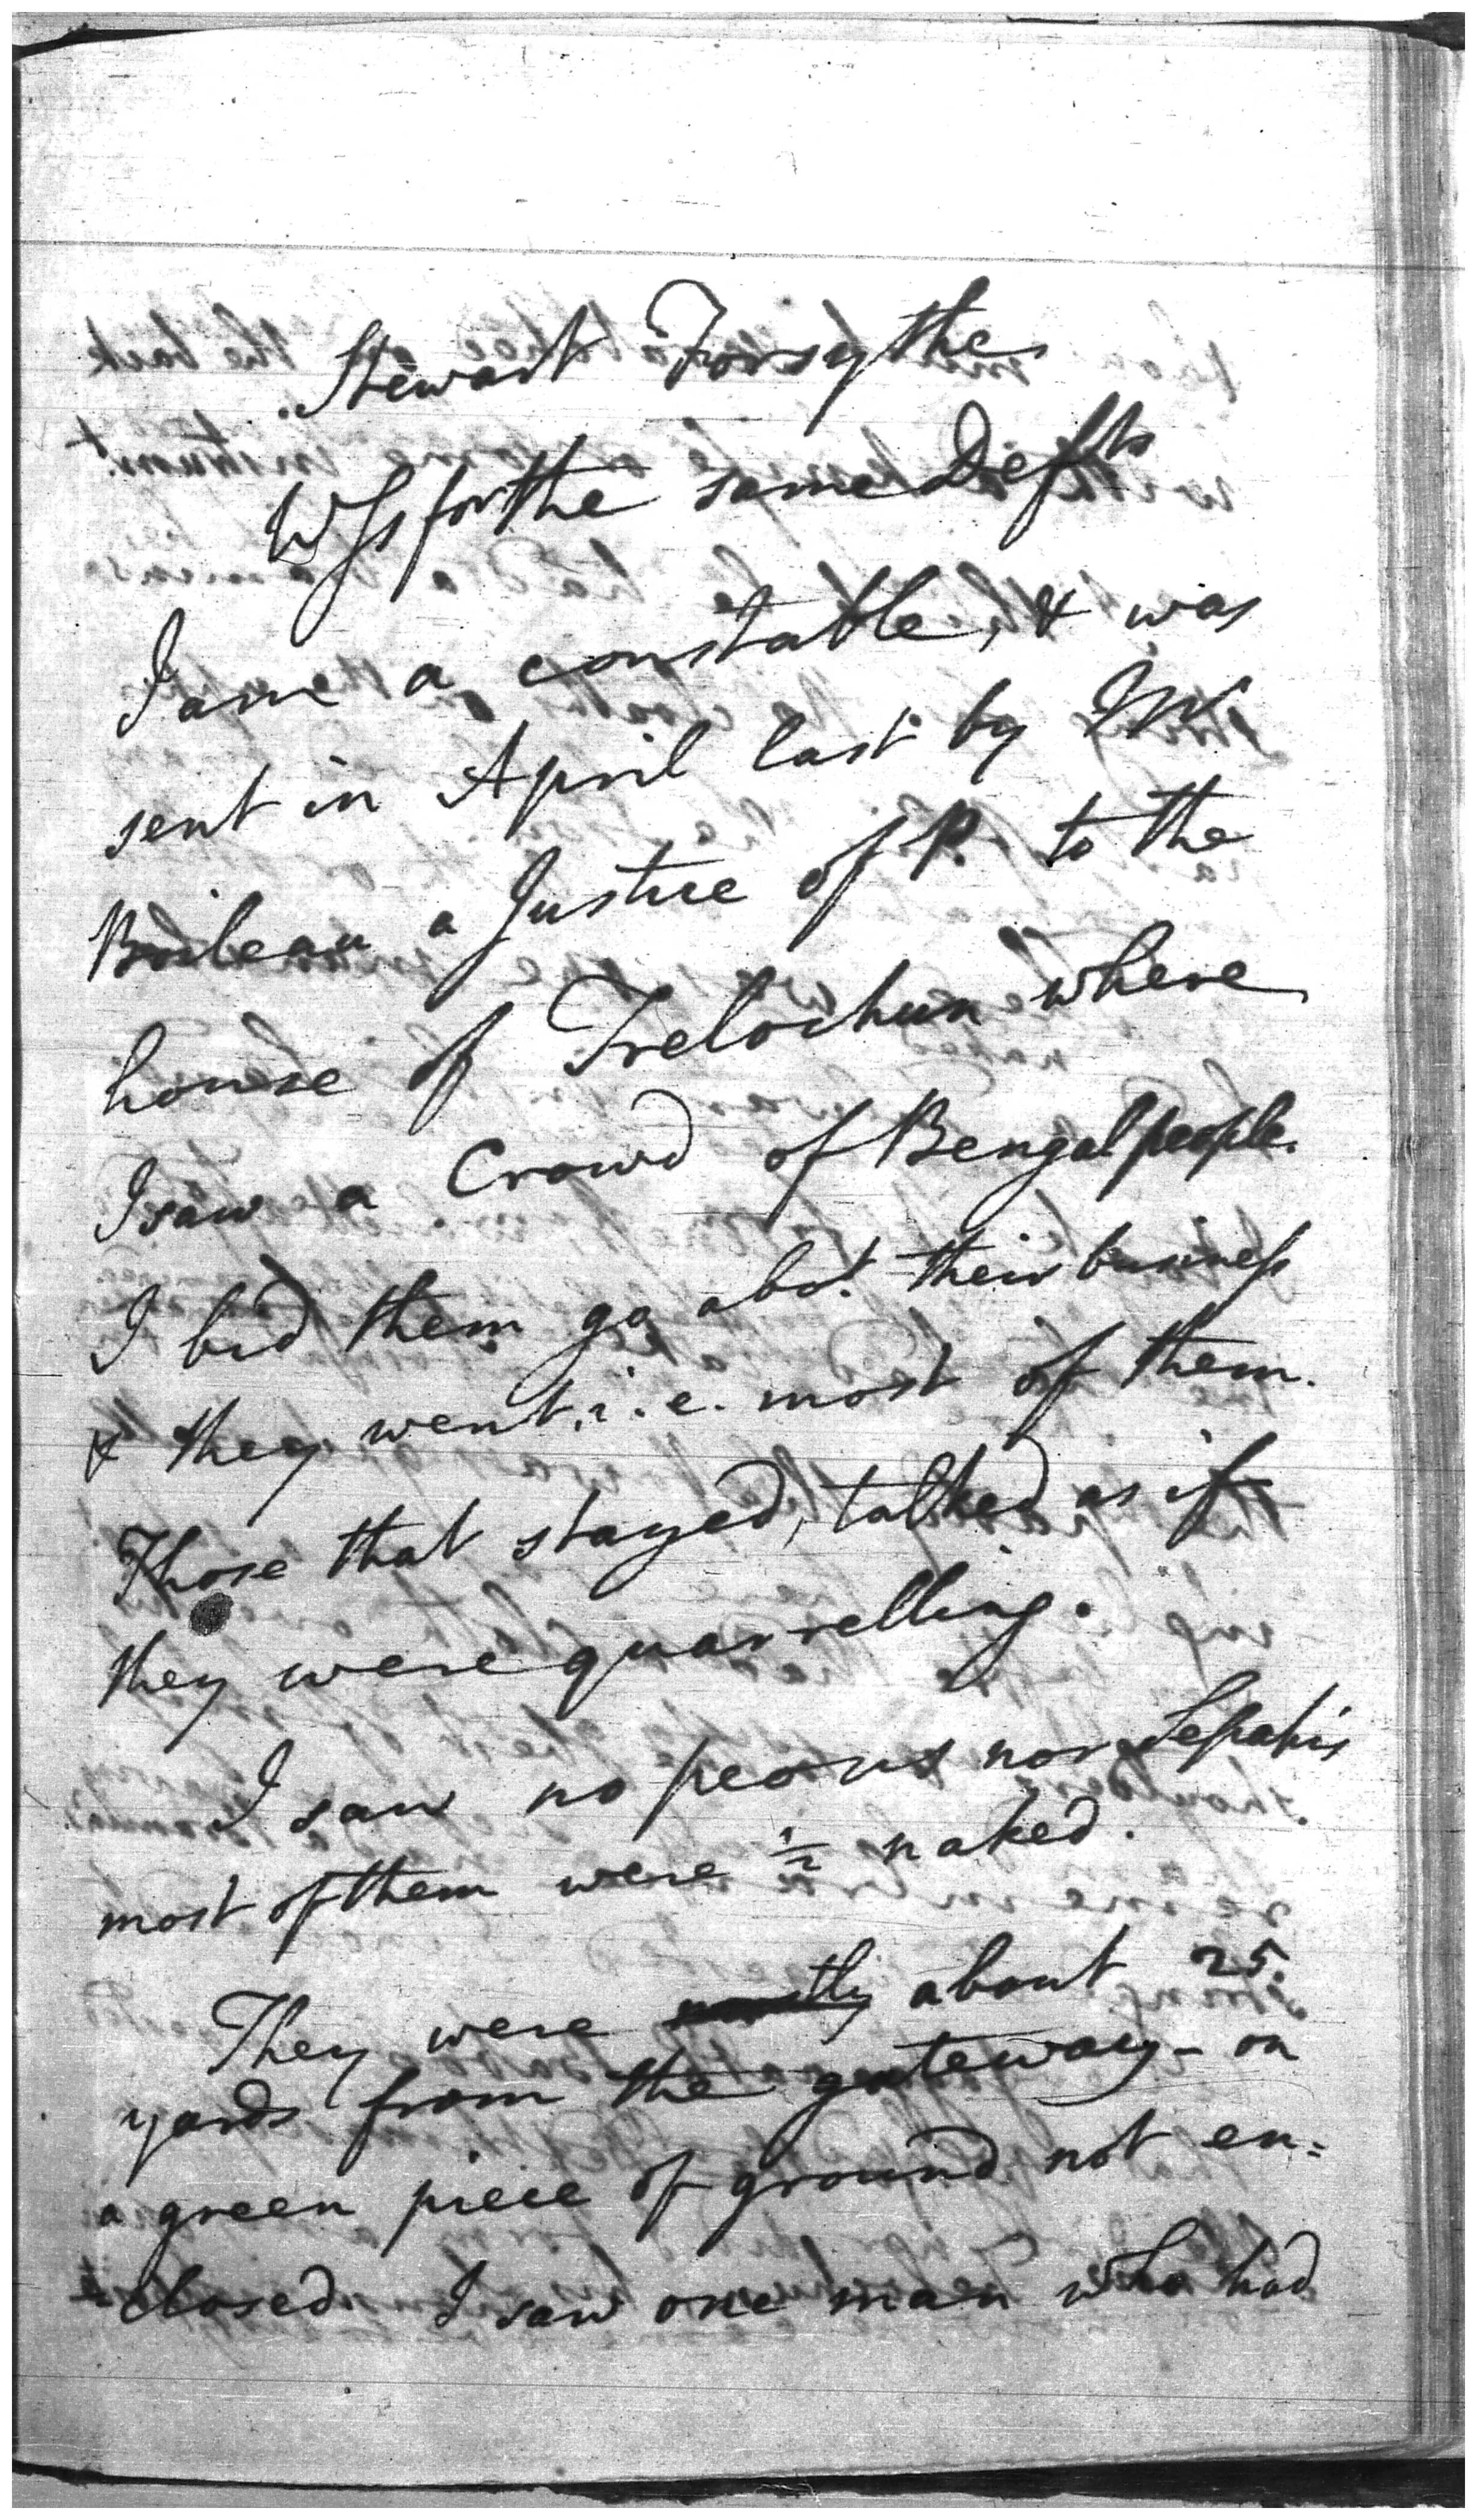 Stewart Forsythe
Wss for the same Defts
I am a constable, & was
sent in April last by Mr
Boileau a Justice of P. to the
house of Trelochun where
I saw a Crowd of Bengal people.
I bid them go abot. their business
& they went, i.e. most of them.
Those that stayed, talked as if
they were quarrelling.
I saw no peons nor Sepahis
most of them were ½ naked.
They were about 25
yards from the gateway - on
a green piece of ground not en=
closed I saw one man who had